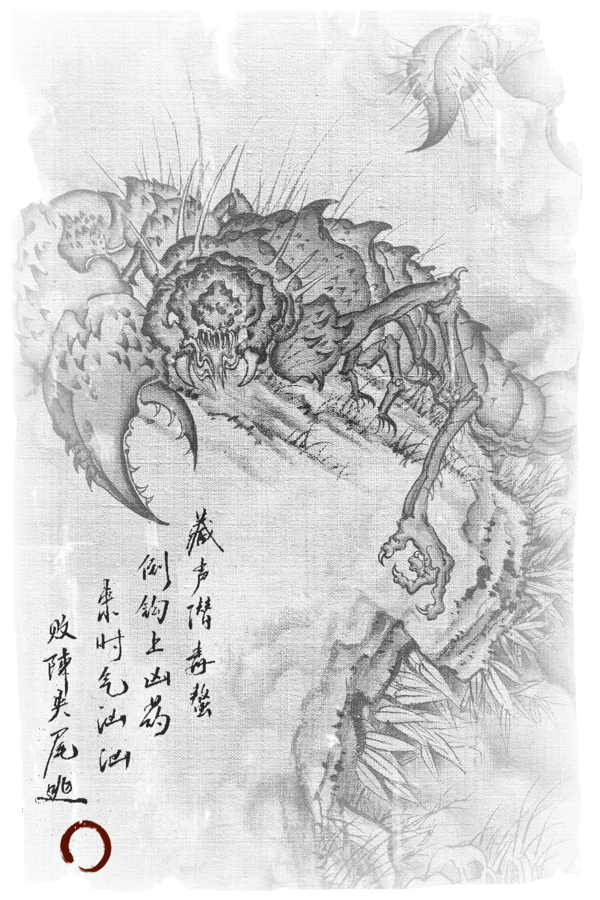 藏声潜毒螯
倒钩上凶
来时气汹汹
败陣夹尾逃